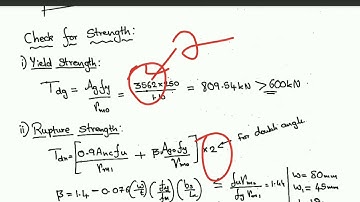 Check for Strength:
i) Yield Strength:
2
Tdg = Ag fy / γm0 = 3562×250 / 1.10 = 809.54kN > 600kN
ii) Rupture Strength:
Tdn = [0.9Anc fu / γm1 + β Ago fy / γm0] × 2 → for double angle
β = 1.4 - 0.076 (w/t) (fy/fu) (bs/Lc) = fu γm0 / fy γm1 = 1.44
w = 80mm
w1 = 45mm